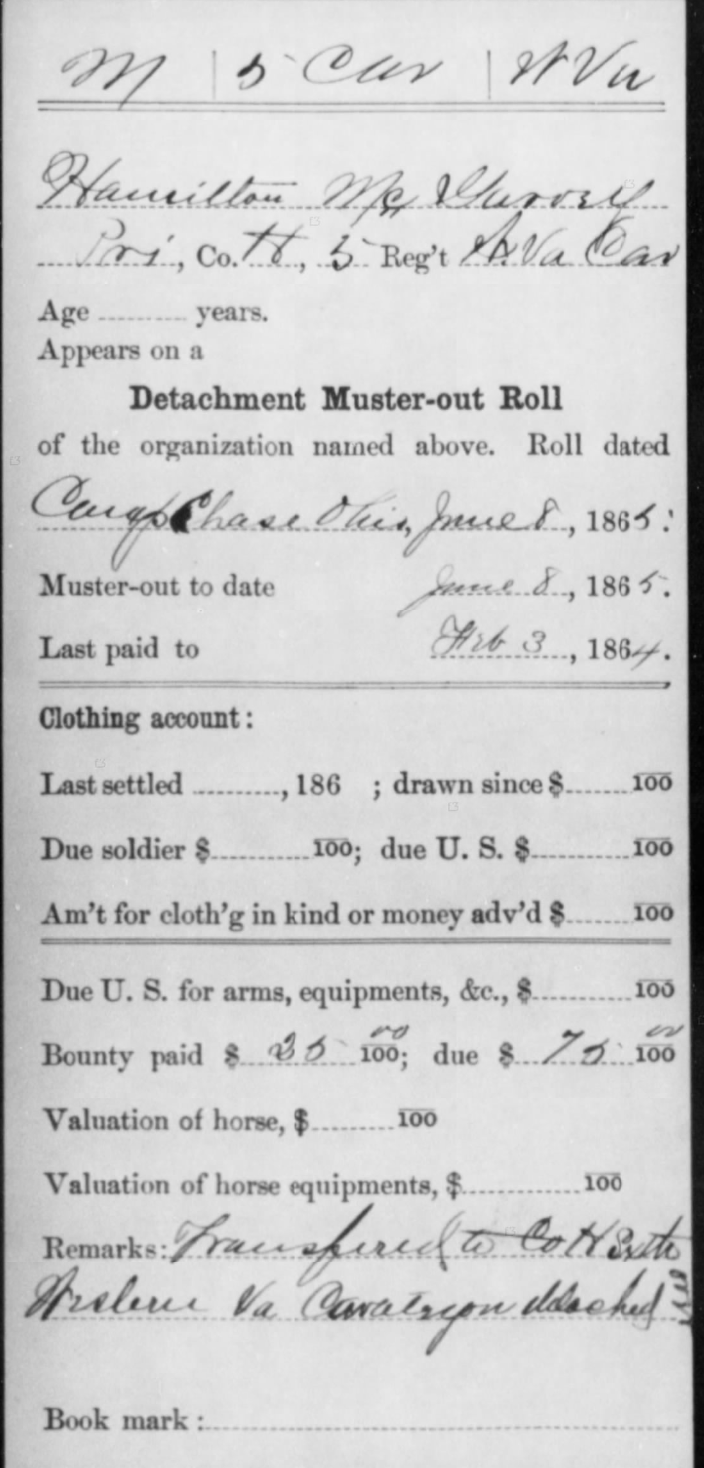 M | 5 Cav | W Va
Hamilton Mc Garvey
Pri, Co. H, 5 Reg't W. Va Cav
Age ______ years.
Appears on a
Detachment Muster-out Roll
of the organization named above. Roll dated
Camp Chase Ohio, June 8, 1865.
Muster-out to date June 8, 1865.
Last paid to Feb 3, 1864.
Clothing account:
Last settled ______, 186 ; drawn since $ ______ 100
Due soldier $ ______ 100; due U. S. $ ______ 100
Am't for cloth'g in kind or money adv'd $ ______ 100
Due U. S. for arms, equipments, &c., $ ______ 100
Bounty paid $ 25 00/100; due $ 75 00/100
Valuation of horse, $ ______ 100
Valuation of horse equipments, $ ______ 100
Remarks: Transfered to Co H Sixth
Western Va Cavalry on detached
Book mark: ______